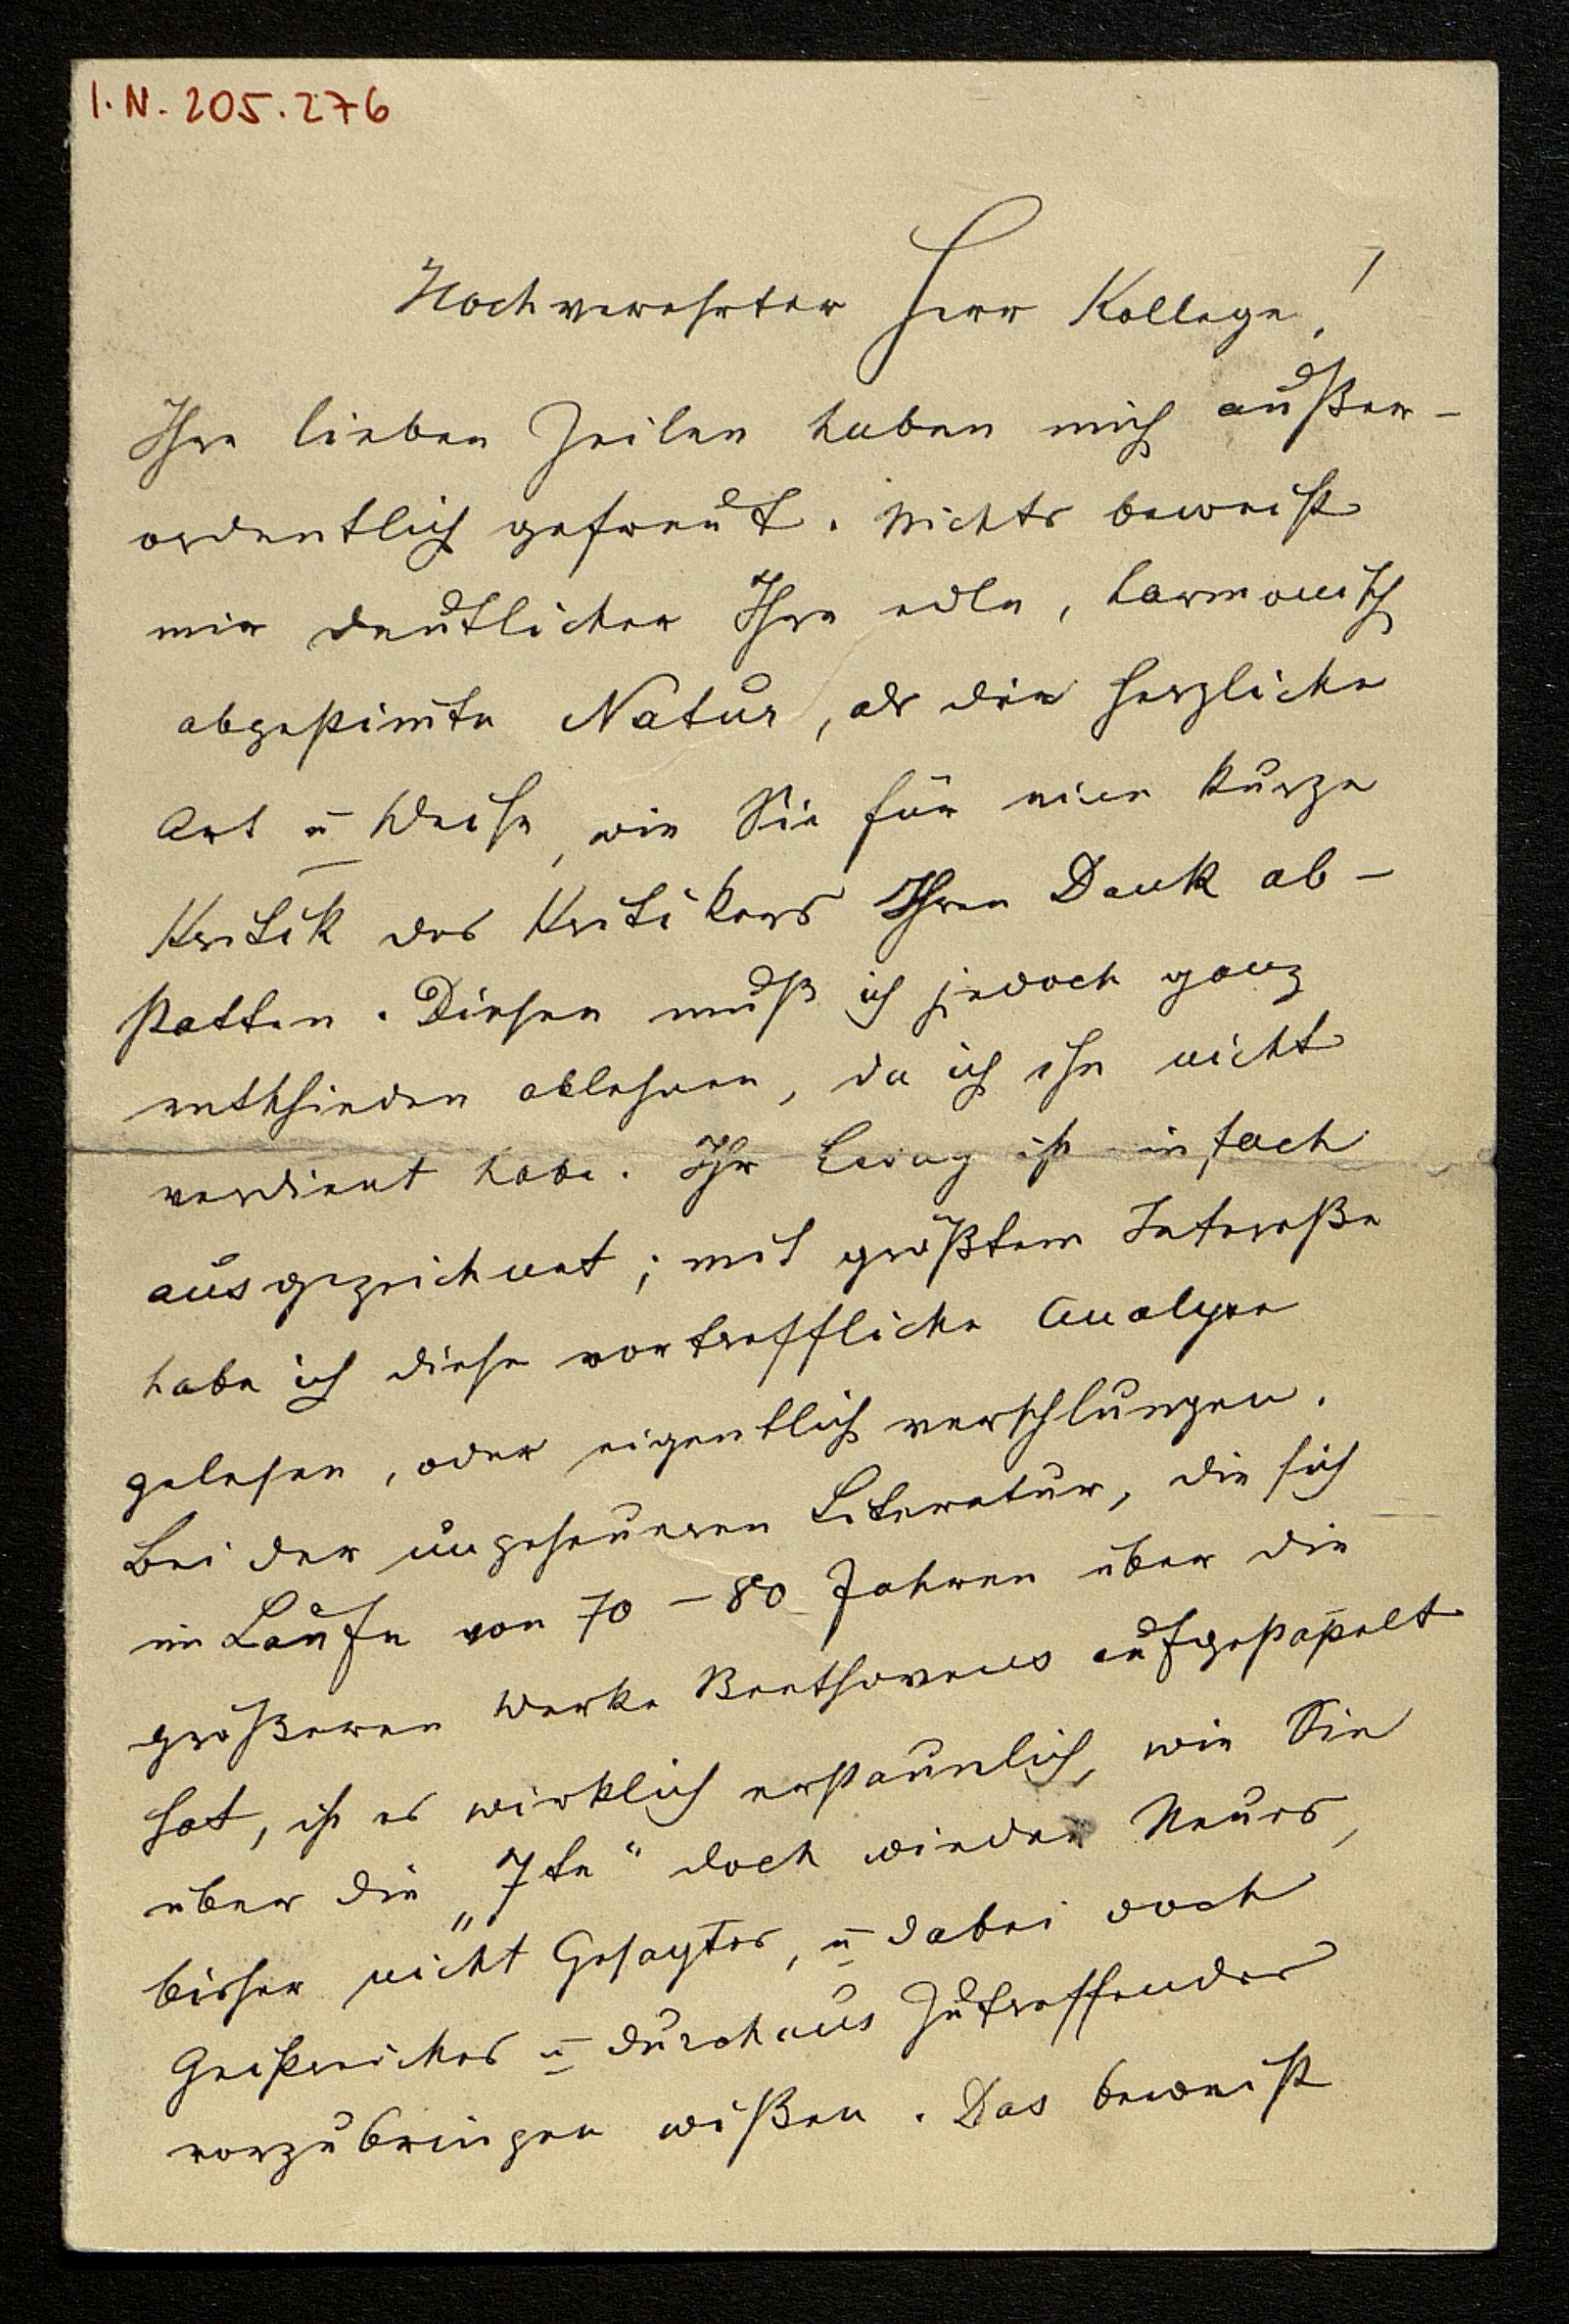 I.N. 205.276
Hochverehrter Herr Kollege!
Ihre lieben Zeilen haben mich außer-
ordentlich gefreut. Nichts beweist
mir deutlicher Ihre edle, harmonisch
abgestim̅te Natur, als die herzliche
Art u̅ Weise, wie Sie für eine kurze
Kritik des Kritikers Ihren Dank ab-
statten. Diesen muß ich jedoch ganz
entschieden ablehnen, da ich ihn nicht
verdient habe. Ihr Essay ist einfach
ausgezeichnet; mit größtem Intereße
habe ich diese vortreffliche Analyse
gelesen, oder eigentlich verschlungen.
Bei der ungeheueren Literatur, die sich
im Laufe von 70–80 Jahren über die
größeren Werke Beethovens aufgestapelt
hat, ist es wirklich erstaunlich, wie Sie
über die „7te“ doch wieder Neues,
bisher nicht Gesagtes, u̅ dabei doch
Geistreiches u̅ durchaus Zutreffendes
vorzubringen wißen. Das beweist